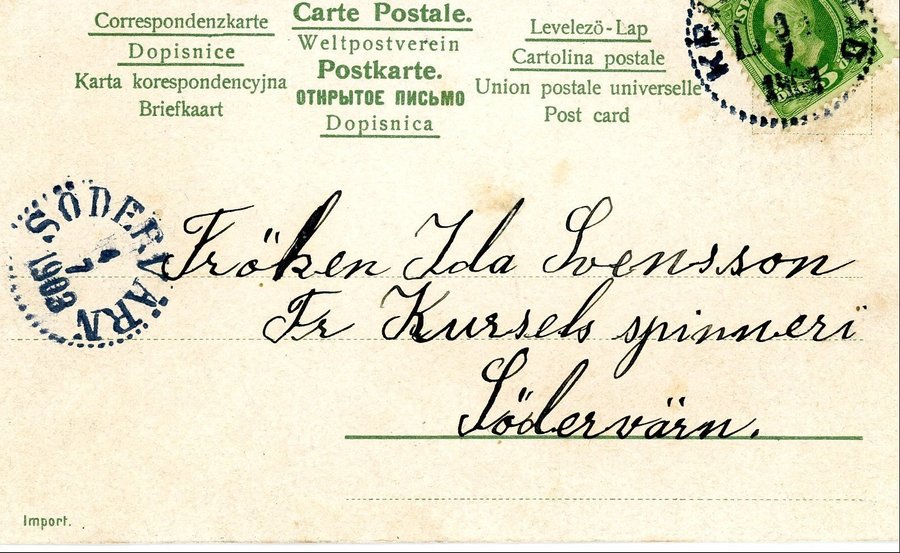 Correspondenzkarte
Dopisnice
Karta korespondencyjna
Briefkaart
Carte Postale.
Weltpostverein
Postkarte.
ОТКРЫТОЕ ПИСЬМО
Dopisnica
Levelezö-Lap
Cartolina postale
Union postale universelle
Post card
SÖDERVÄRN
4
7
1903
Fröken Ida Svensson
Fr Kursels spinneri
Södervärn.
Import.